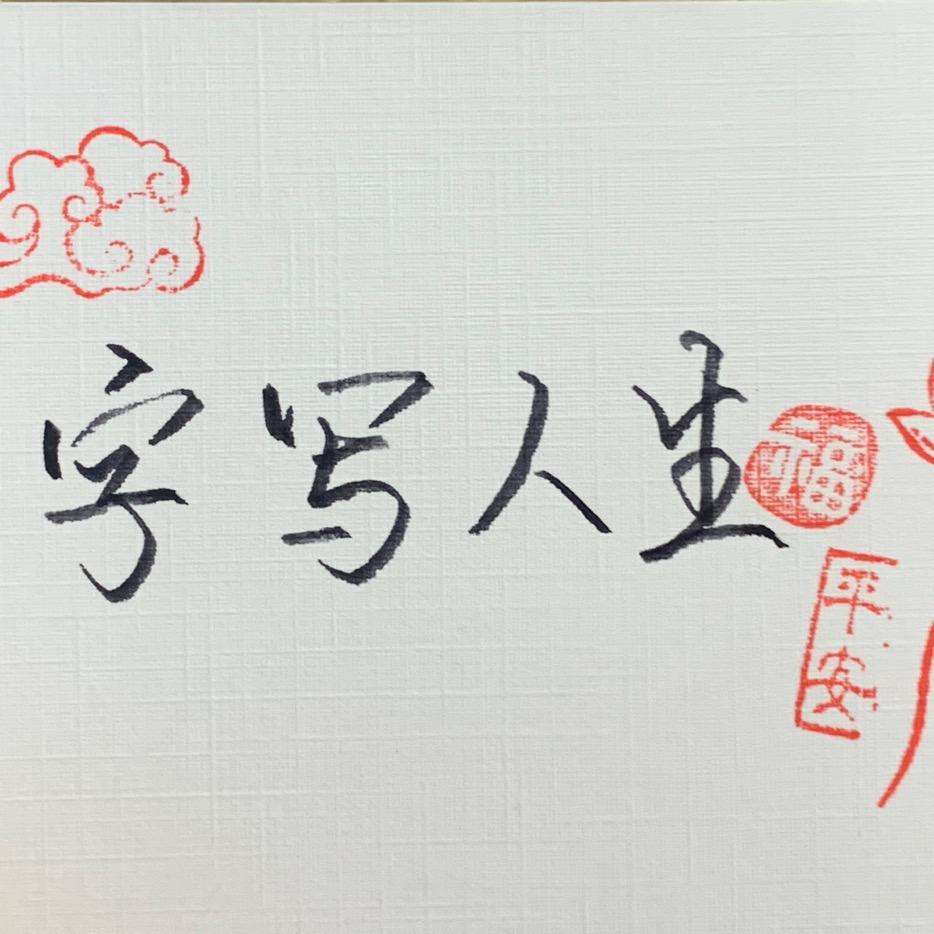 字写人生
福
平安